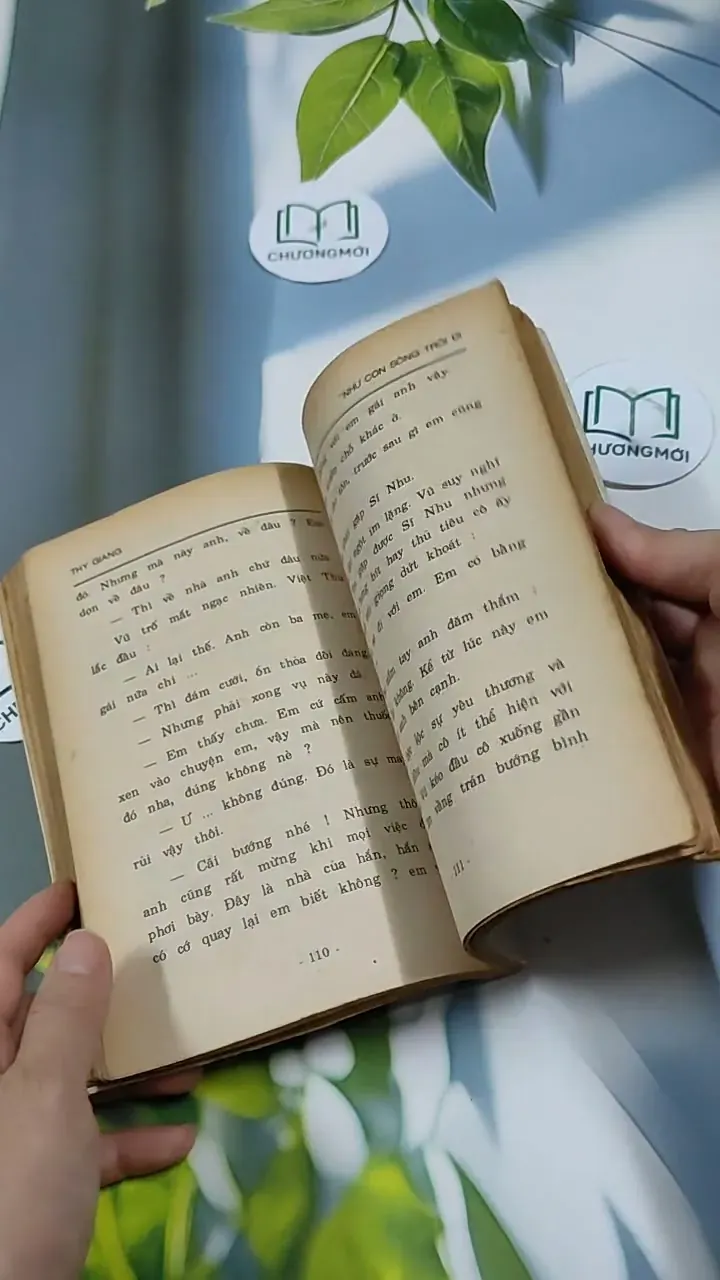 CHƯƠNGMỚI
HƯƠNGMỚI
THY GIANG
đó. Nhưng mà này anh, về đâu ? Em
dọn về đâu ?
— Thì về nhà anh chứ đâu nữa
Vũ trố mắt ngạc nhiên. Việt Thu
lắc đầu :
— Ai lại thế. Anh còn ba mẹ, em
gái nữa chi ...
— Thì đám cưới, ổn thỏa đôi đàng
— Nhưng phải xong vụ này đã
— Em thấy chưa. Em cứ cấm anh
xen vào chuyện em, vậy mà nên thuốc
đó nha, đúng không nè ?
— Ư ... không đúng. Đó là sự ma
rủi vậy thôi.
— Cãi bướng nhé ! Nhưng thô
anh cũng rất mừng khi mọi việc
phơi bày. Đây là nhà của hắn, hắn
có cớ quay lại em biết không ? em
- 110 -
NHƯ CON SÔNG TRÔI ĐI
với em gái anh vậy.
chỗ khác ở.
tồn, trước sau gì em cũng
gặp Sĩ Nhu.
ngồi im lặng. Vũ suy nghĩ
gặp được Sĩ Nhu nhưng
bịt hay thủ tiêu cô ấy
giọng dứt khoát :
đi với em. Em có bằng
tay anh đăm thắm :
không. Kể từ lúc này em
anh bên cạnh.
lộc sự yêu thương và
mà cô ít thể hiện với
kéo đầu cô xuống gần
vầng trán bướng bỉnh
111 -